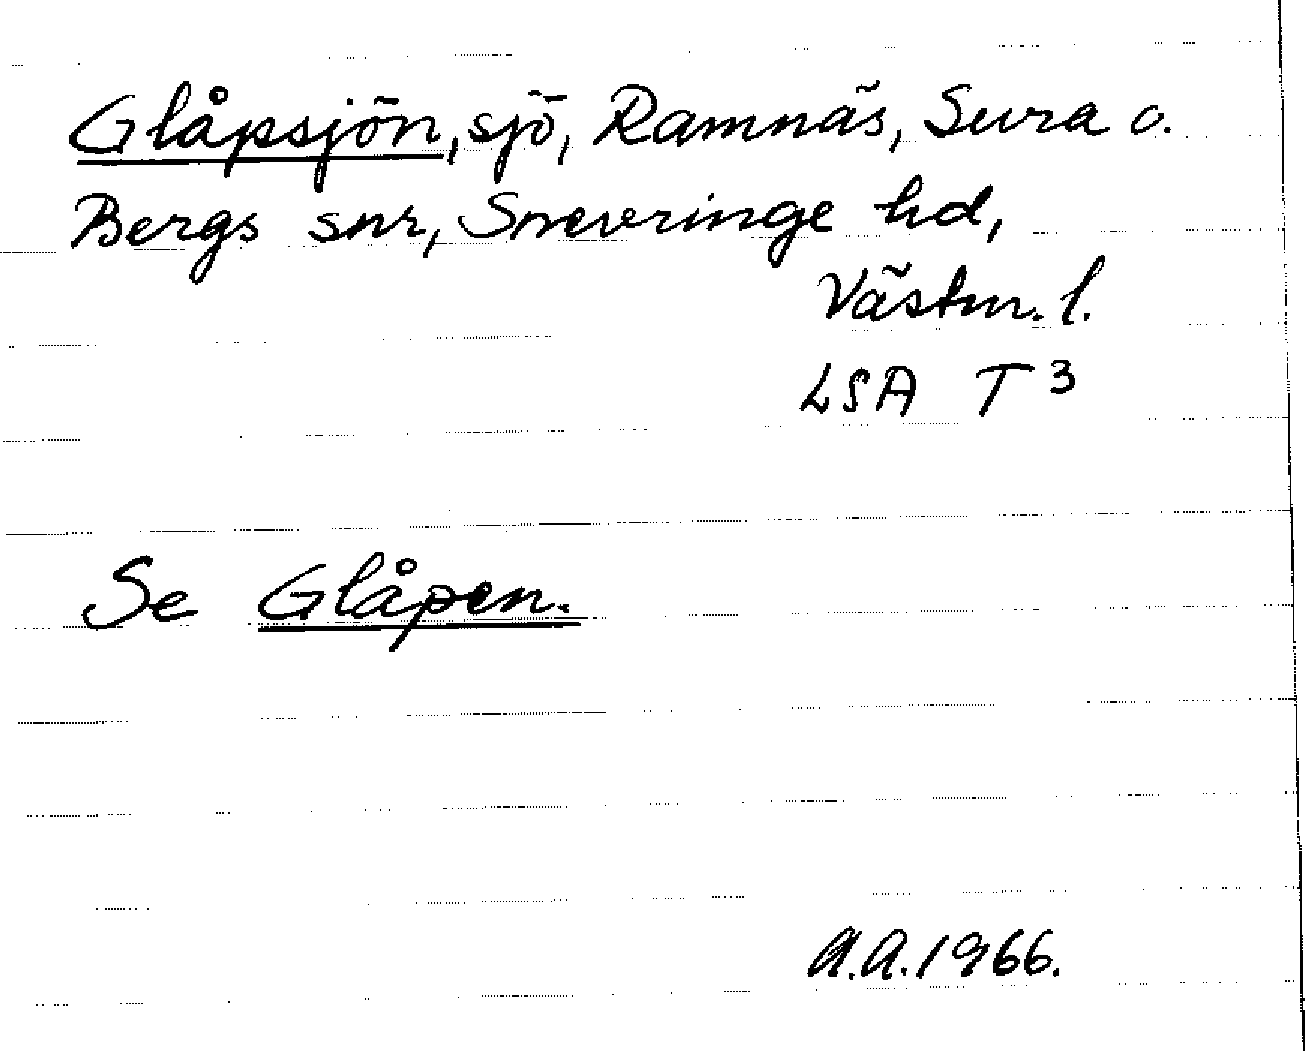 Glåpsjön, sjö, Ramnäs, Sura o.
Bergs snr, Snevringe hd,
Västm. l.
LSA T 3
Se Glåpen.
A.A. 1966.